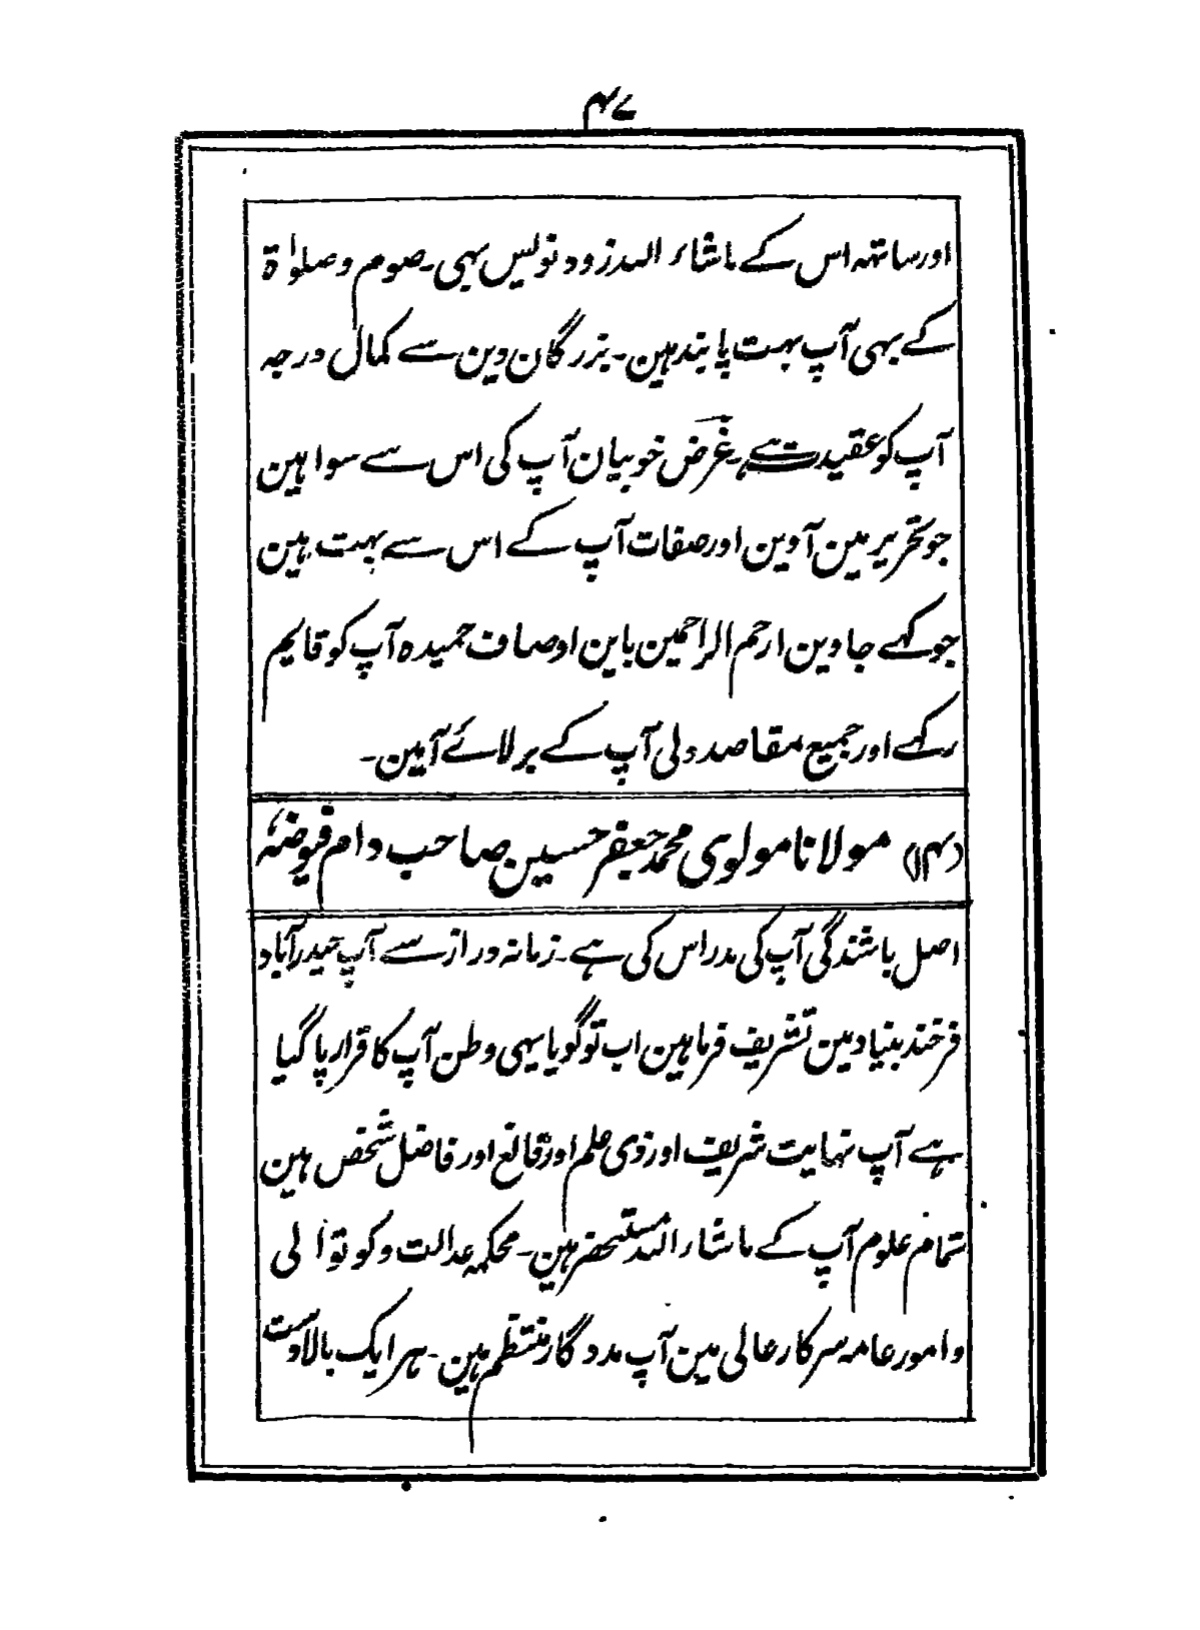 ۴۷
اور ساتہہ اس کے ماشاء اللہ زود نویس بہی۔ صوم و صلوٰۃ
کے بہی آپ بہت پابند ہین۔ بزرگان دین سے کمال درجہ
آپ کو عقیدت ہے۔ غرض خوبیان آپ کی اس سے سوا ہین
جو تحریر مین آوین اور صفات آپ کے اس سے بہت ہین
جو کہے جاوین ارحم الراحمین باین اوصاف حمیدہ آپ کو قایم
رکہے اور جمیع مقاصد دلی آپ کے برلائے آمین۔
(۱۴) مولانا مولوی محمد جعفر حسین صاحب دام فیوضہٗ
اصل باشندگی آپ کی مدراس کی ہے۔ زمانہ دراز سے آپ حیدرآباد
فرخندہ بنیاد مین تشریف فرما ہین اب تو گویا یہی وطن آپ کا قرار پا گیا
ہے آپ نہایت شریف اور ذی علم اور قانع اور فاضل شخص ہین
تمام علوم آپ کے ماشاء اللہ مستحضر ہین۔ محکمہ عدالت و کوتوالی
و امور عامہ سرکار عالی مین آپ مددگار منتظم ہین۔ ہر ایک بالادست